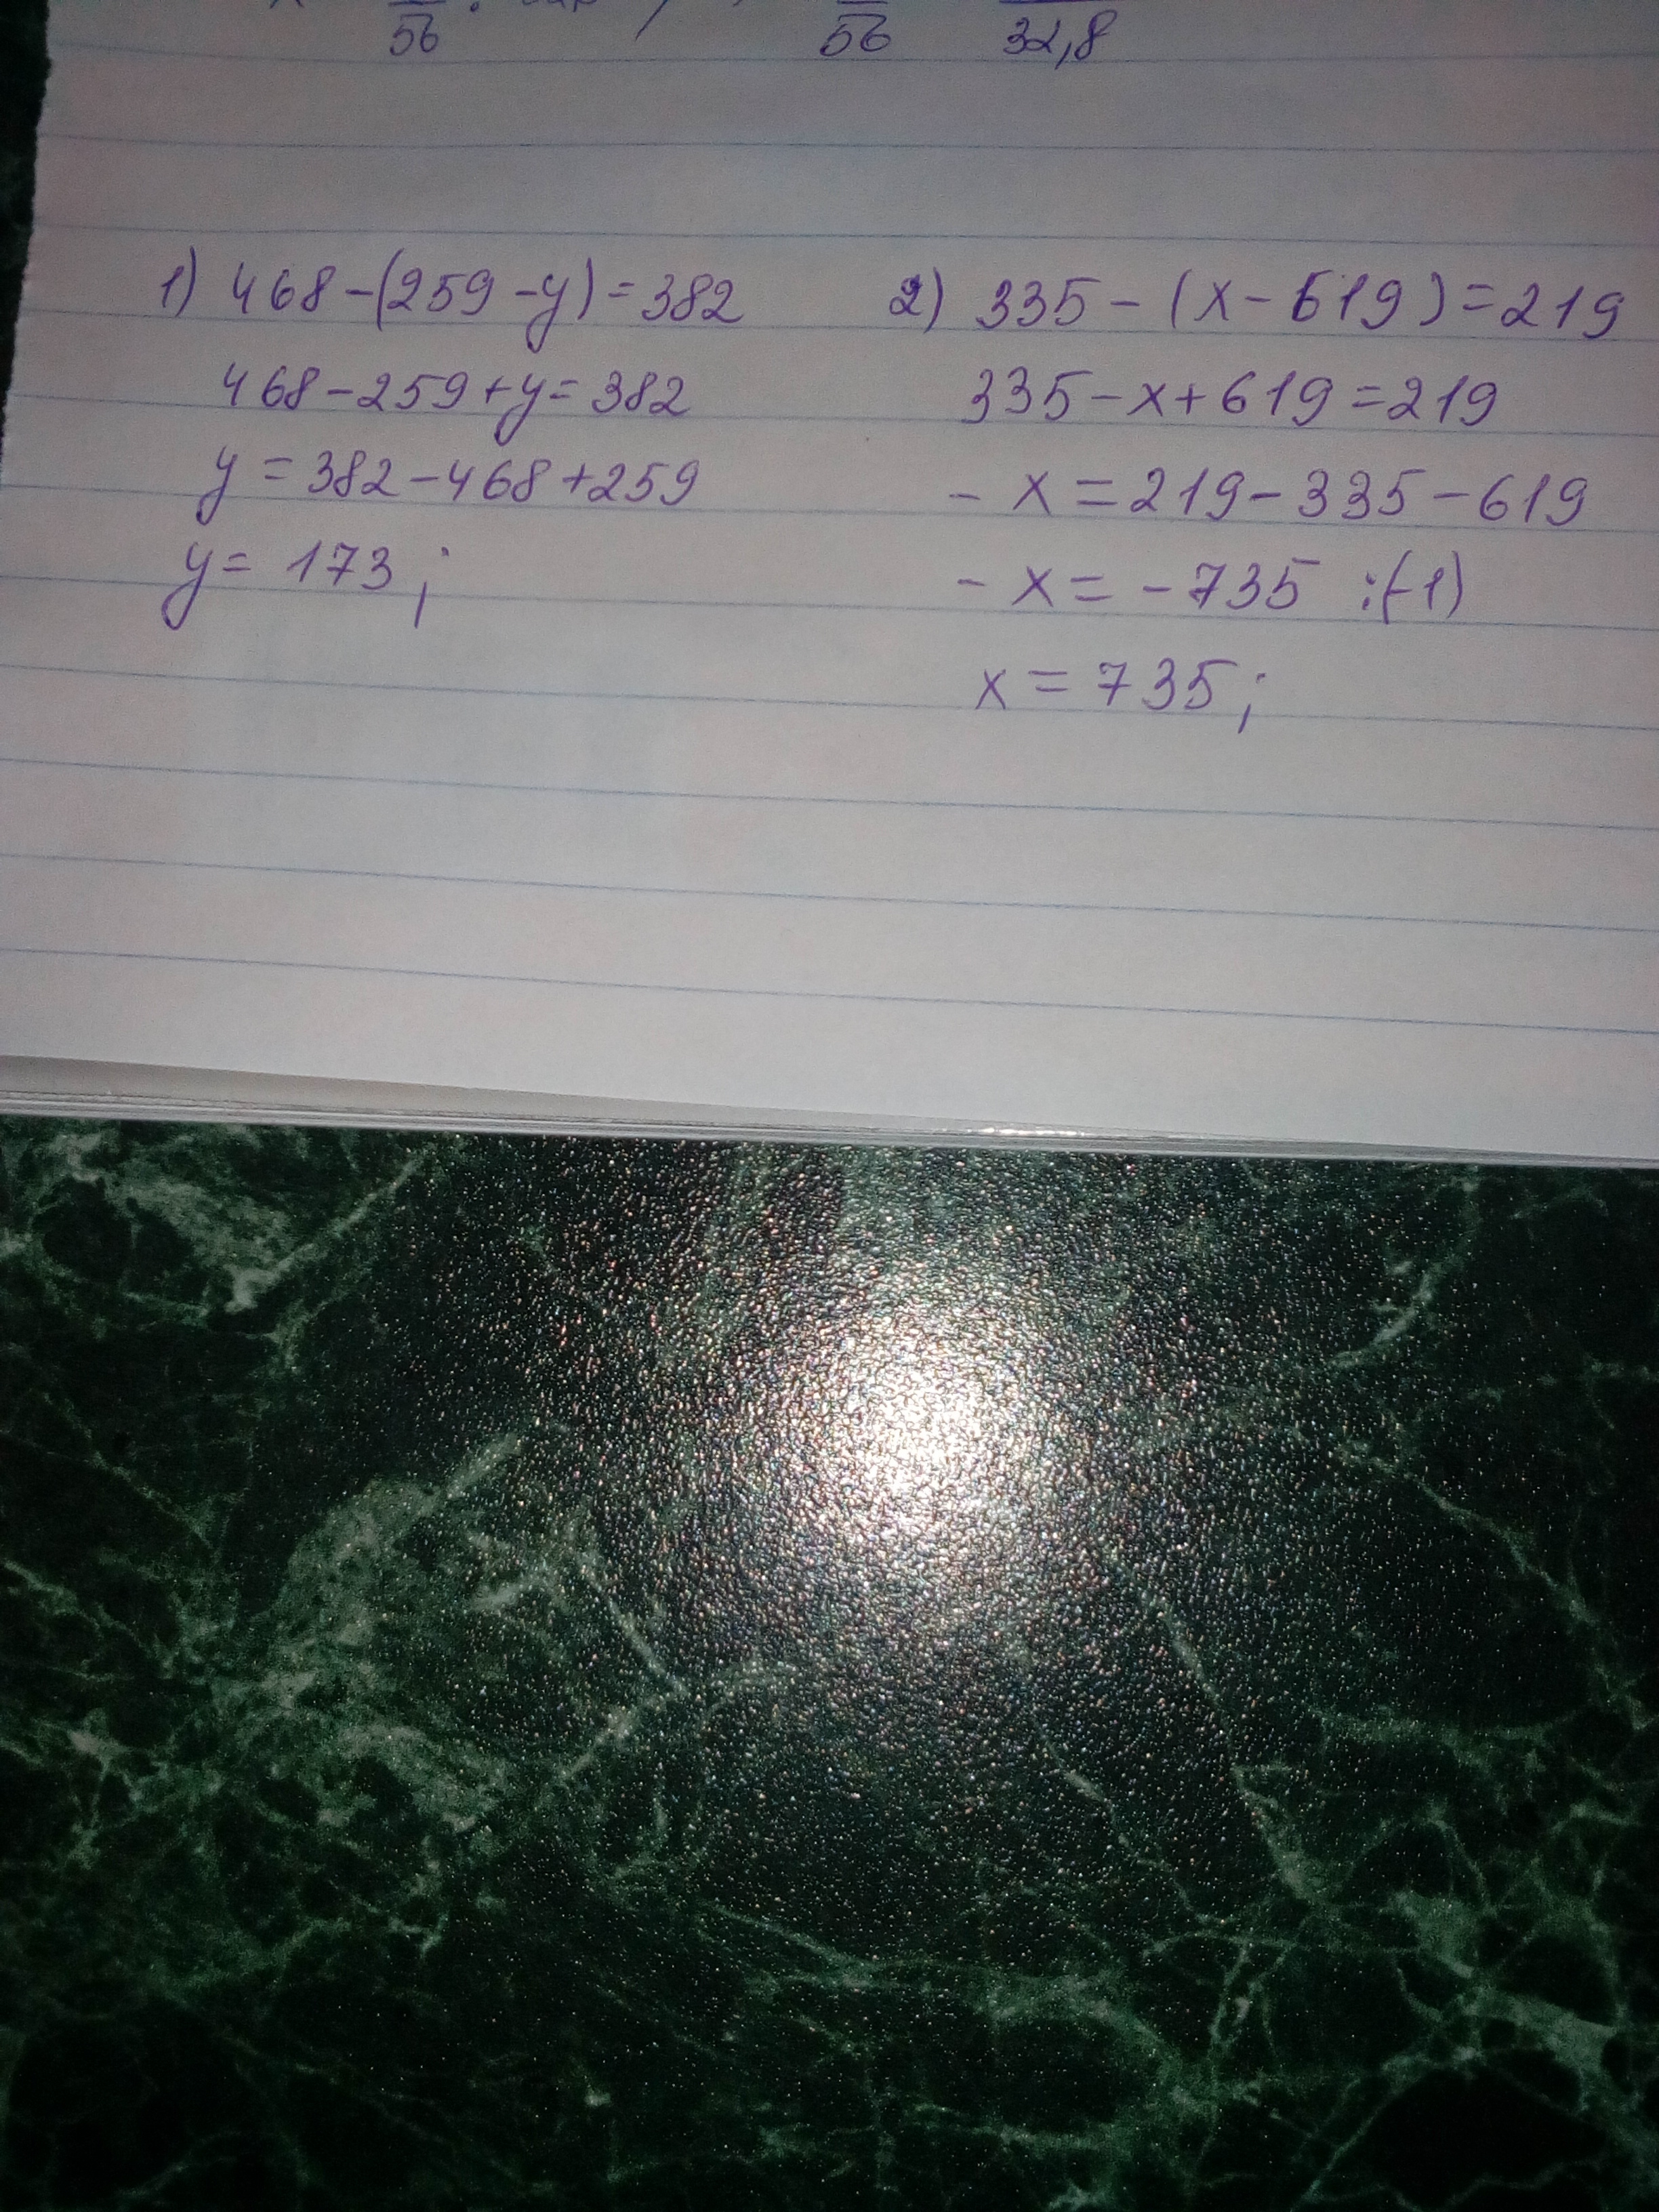 56 56 32,8
1) 468-(259-y)=382
468-259+y=382
y=382-468+259
y=173;
2) 335-(x-619)=219
335-x+619=219
-x=219-335-619
-x=-735 :(-1)
x=735;